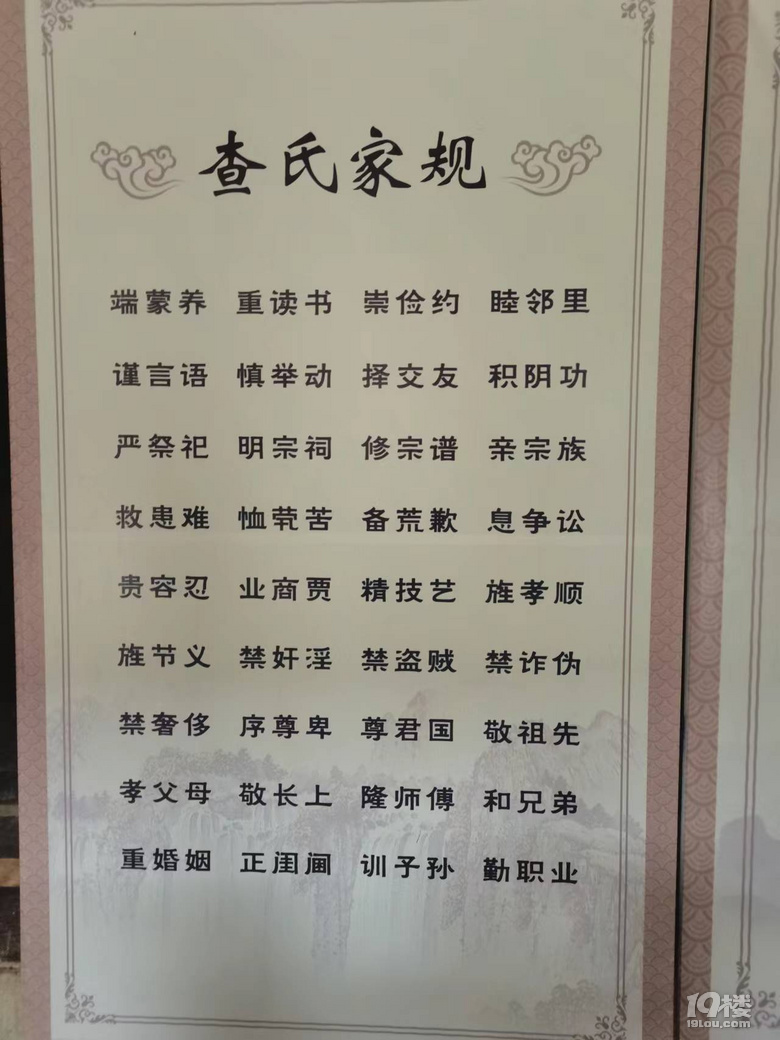 查氏家规
端蒙养 重读书 崇俭约 睦邻里
谨言语 慎举动 择交友 积阴功
严祭祀 明宗祠 修宗谱 亲宗族
救患难 恤茕苦 备荒歉 息争讼
贵容忍 业商贾 精技艺 旌孝顺
旌节义 禁奸淫 禁盗贼 禁诈伪
禁奢侈 序尊卑 尊君国 敬祖先
孝父母 敬长上 隆师傅 和兄弟
重婚姻 正闺阃 训子孙 勤职业
19楼
19lou.com